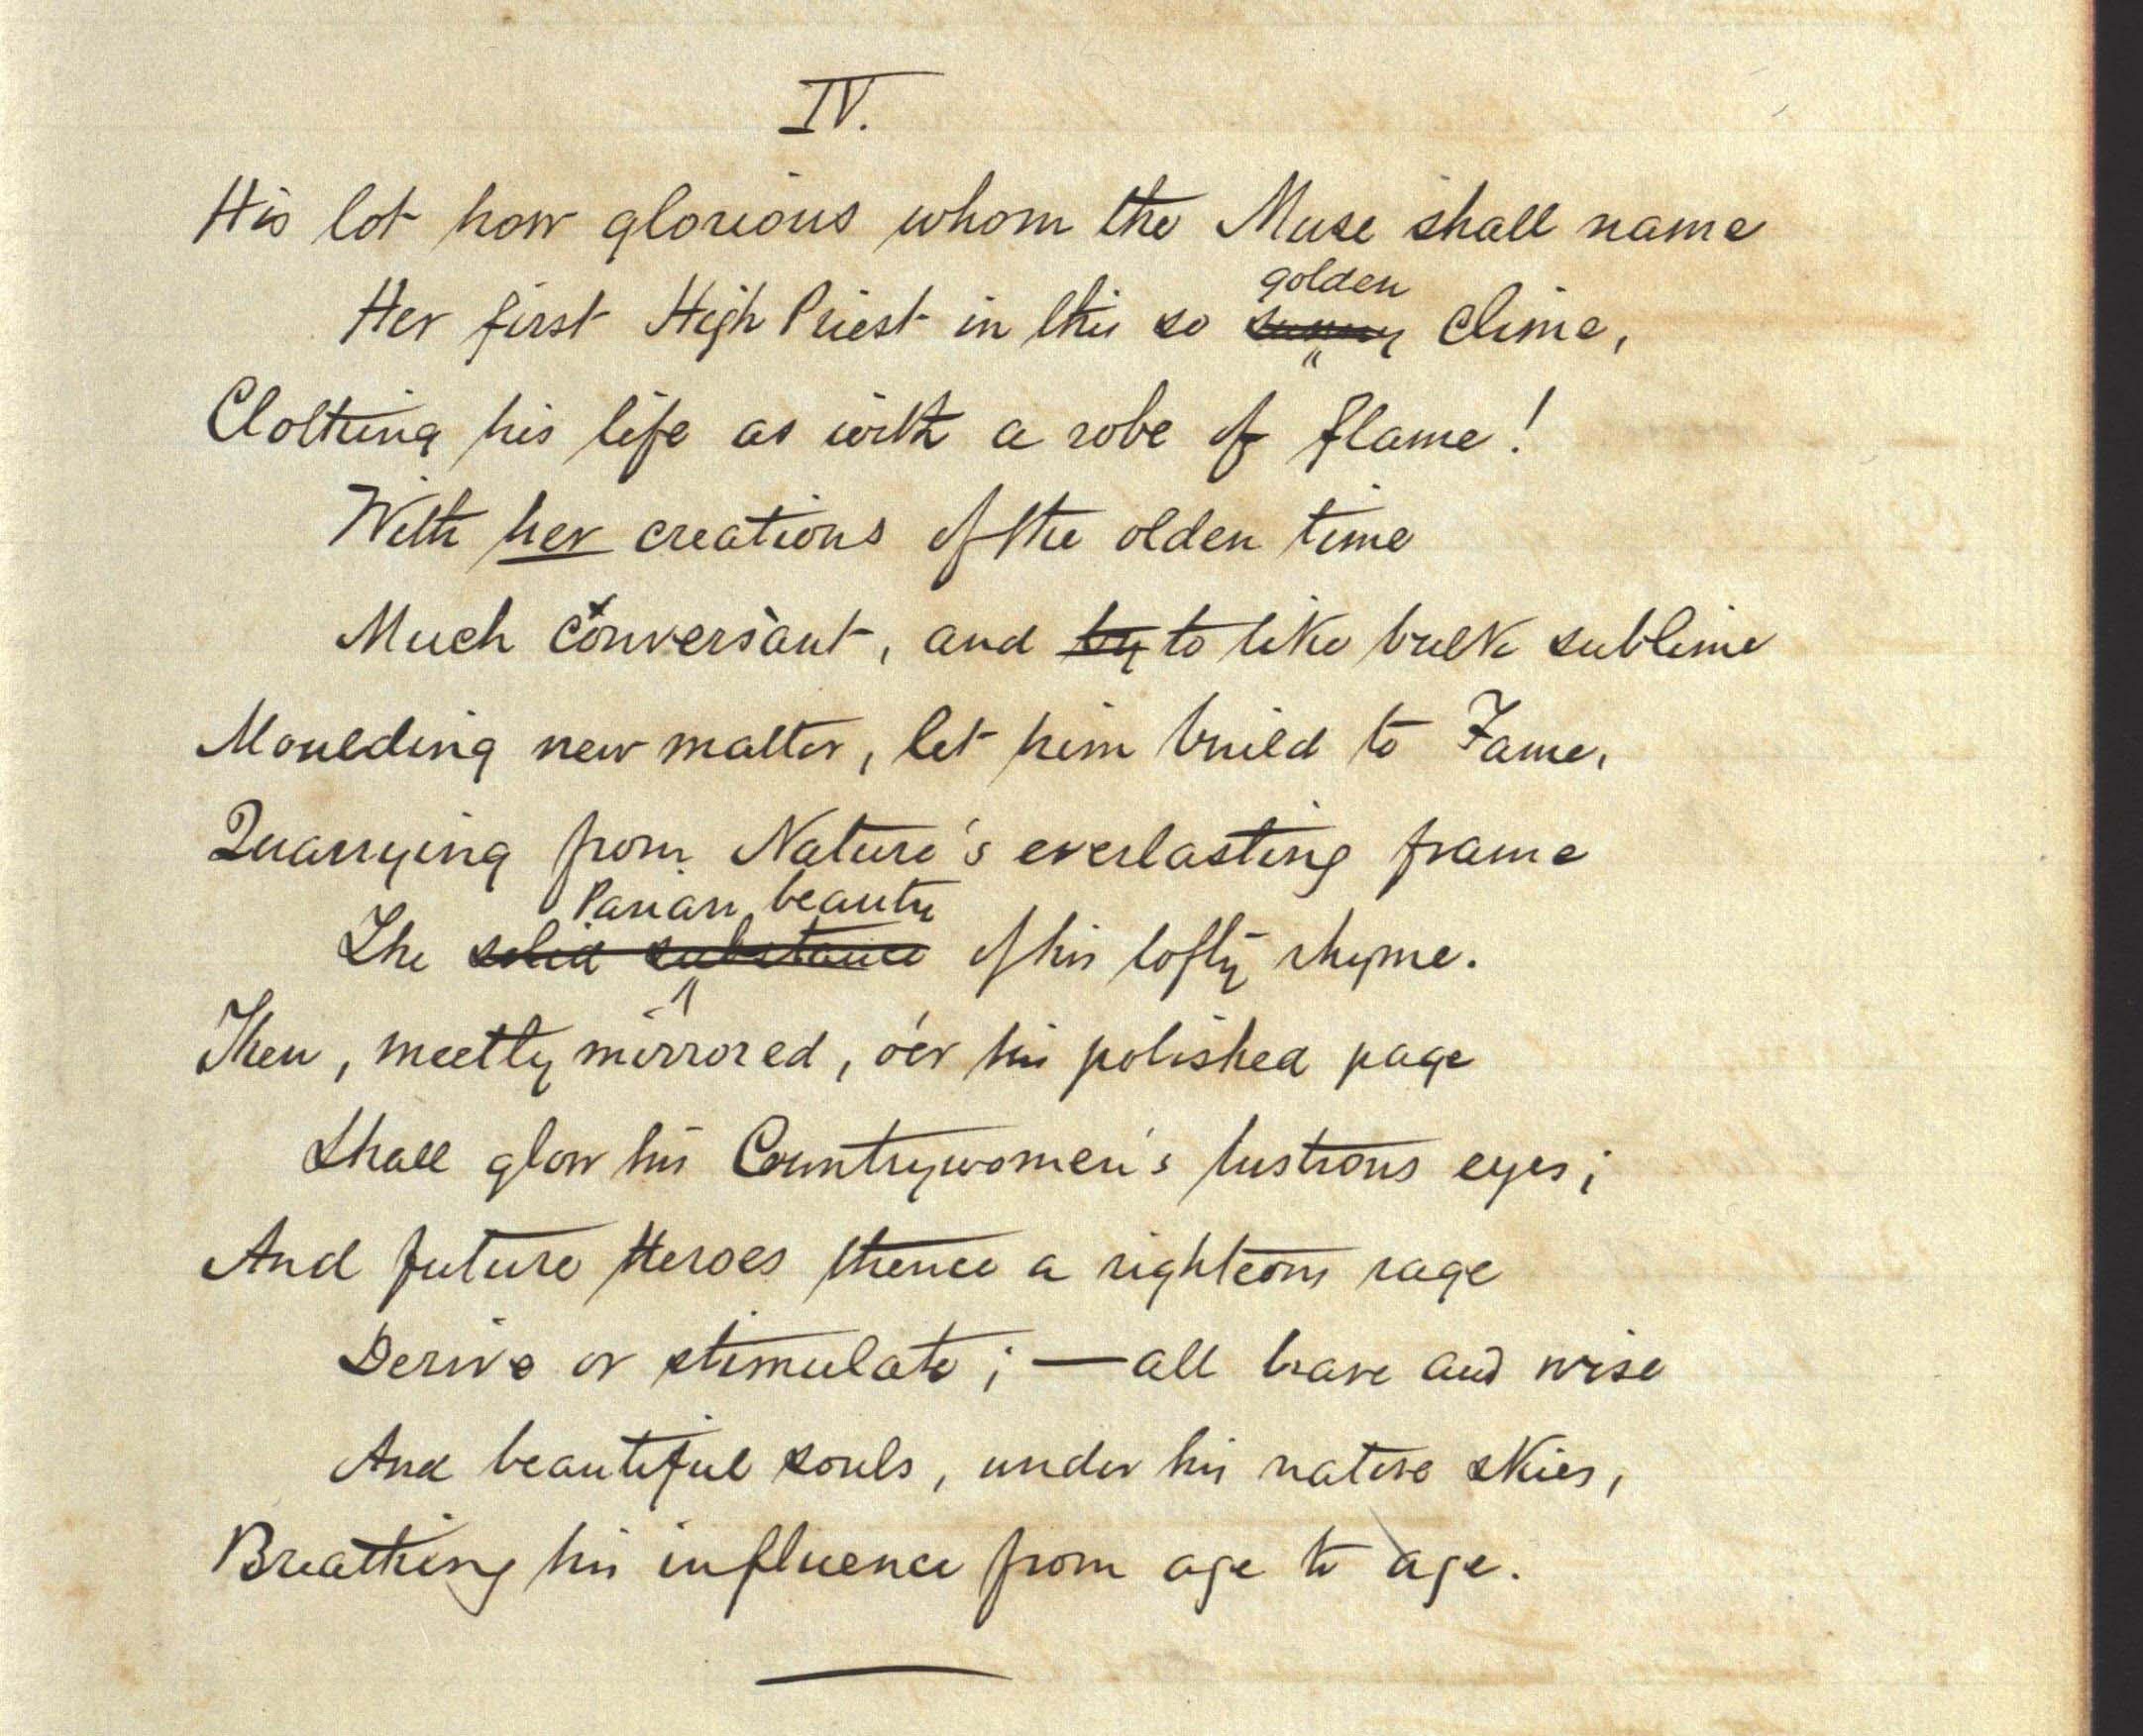 IV.
His lot how glorious whom the Muse shall name
golden
Her first High Priest in this so sunny clime,
Clothing his life as with a robe of flame!
With her creations of the olden time
Much conversant, and by to like bulk sublime
Moulding new matter, let him build to Fame,
Quarrying from Nature's everlasting frame
Parian beauty
The solid substance of his lofty rhyme.
Then, meetly mirrored, o'er his polished page
Shall glow his Countrywomen's lustrous eyes;
And future Heroes thence a righteous rage
Derive or stimulate; — all brave and wise
And beautiful souls, under his native skies,
Breathing his influence from age to age.